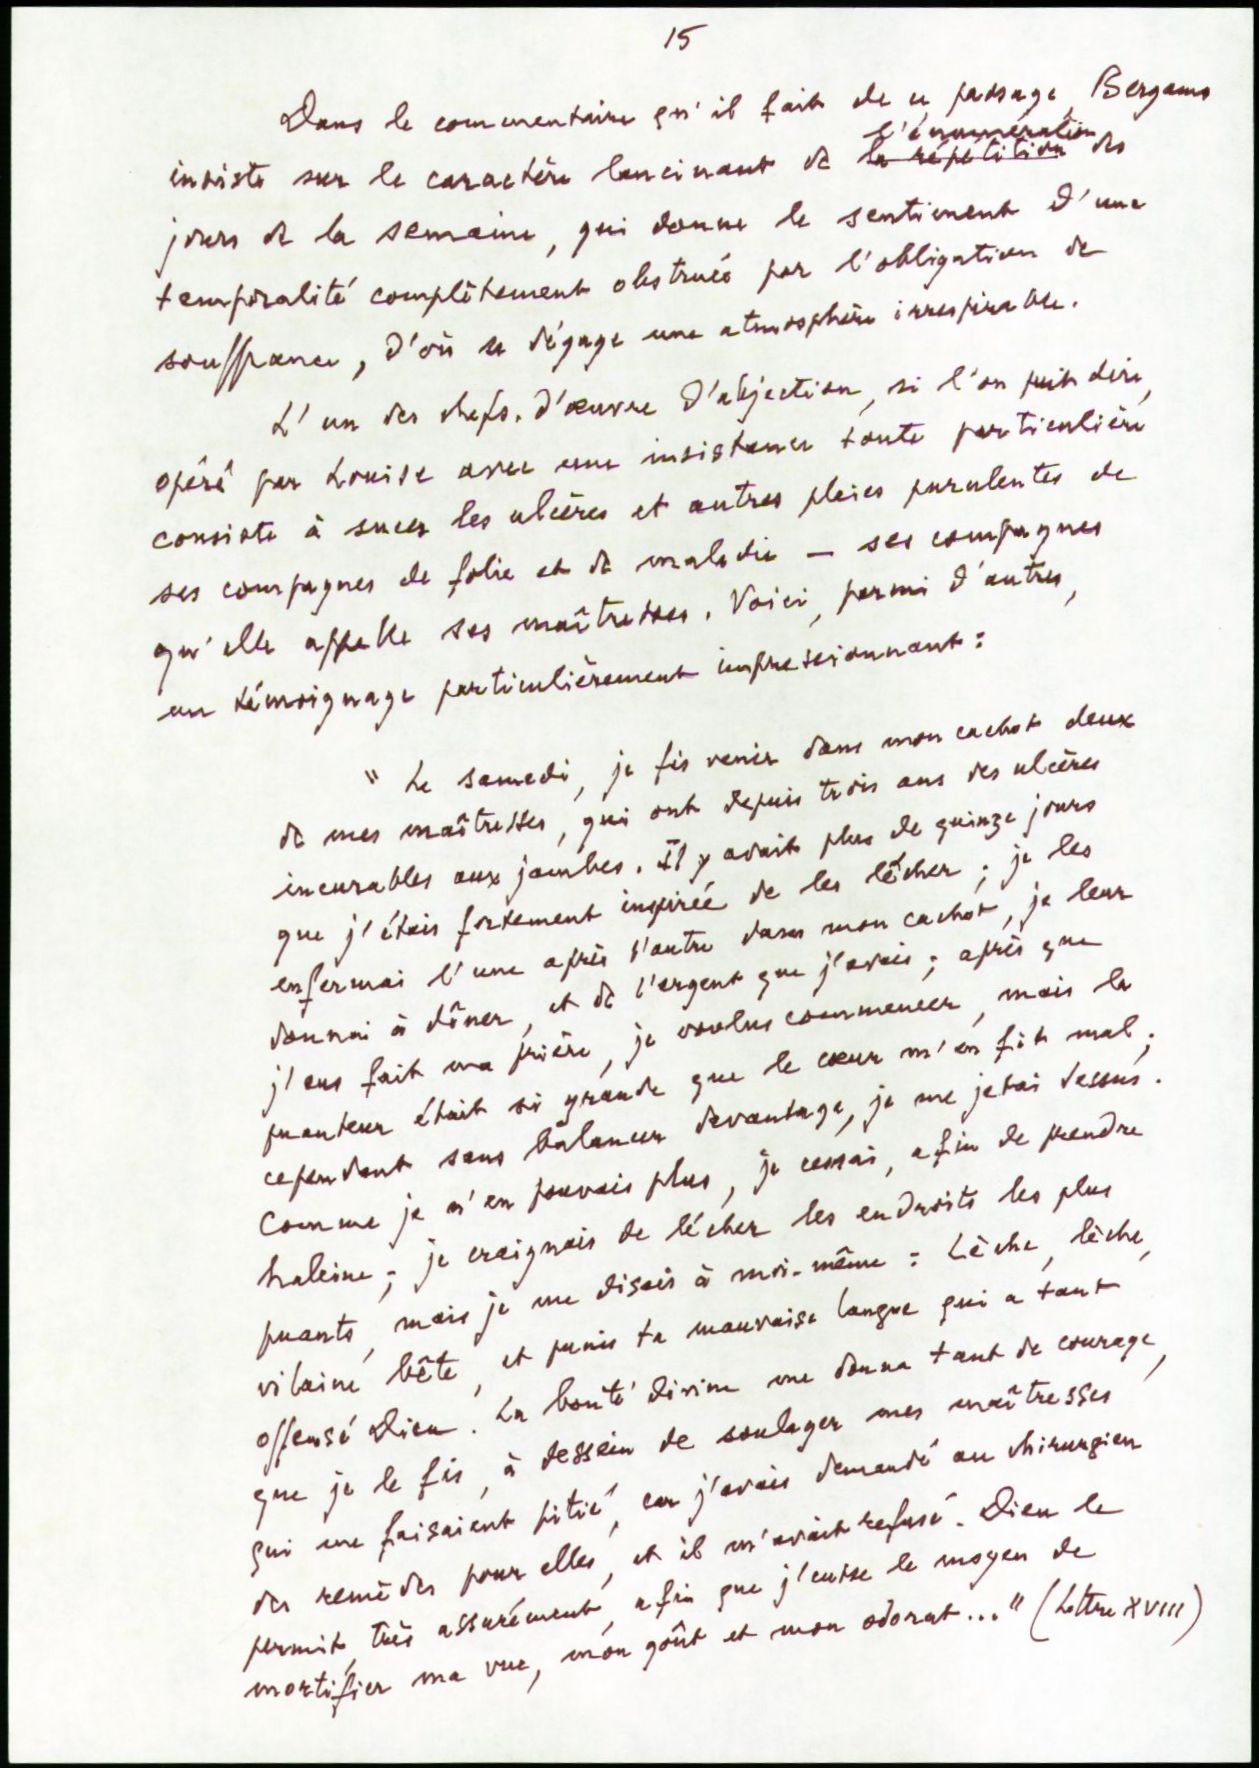 15
Dans le commentaire qu'il fait de ce passage, Bergamo
l'énumération
insiste sur le caractère lancinant de la répétition des
jours de la semaine, qui donne le sentiment d'une
temporalité complètement obstruée par l'obligation de
souffrance, d'où se dégage une atmosphère irrespirable.
L'un des chefs-d'œuvre d'abjection, si l'on peut dire,
opéré par Louise avec une insistance toute particulière
consiste à sucer les ulcères et autres plaies purulentes de
ses compagnes de folie et de maladie — ses compagnes
qu'elle appelle ses maîtresses. Voici, parmi d'autres,
un témoignage particulièrement impressionnant :
" Le samedi, je fis venir dans mon cachot deux
de mes maîtresses, qui ont depuis trois ans des ulcères
incurables aux jambes. Il y avait plus de quinze jours
que j'étais fortement inspirée de les lécher ; je les
enfermai l'une après l'autre dans mon cachot, je leur
donnai à dîner, et de l'argent que j'avais ; après que
j'eus fait ma prière, je voulus commencer, mais la
puanteur était si grande que le cœur m'en fit mal ;
cependant sans balancer davantage, je me jetai dessus.
Comme je n'en pouvais plus, je cessai, afin de prendre
haleine ; je craignais de lécher les endroits les plus
puants, mais je me disais à moi-même : Lèche, lèche,
vilaine bête, et punis ta mauvaise langue qui a tant
offensé Dieu. La bonté divine me donna tant de courage,
que je le fis, à dessein de soulager mes maîtresses
qui me faisaient pitié, car j'avais demandé au chirurgien
des remèdes pour elles, et il m'avait refusé. Dieu le
permit, très assurément, afin que j'eusse le moyen de
mortifier ma vue, mon goût et mon odorat..." (Lettre XVIII)